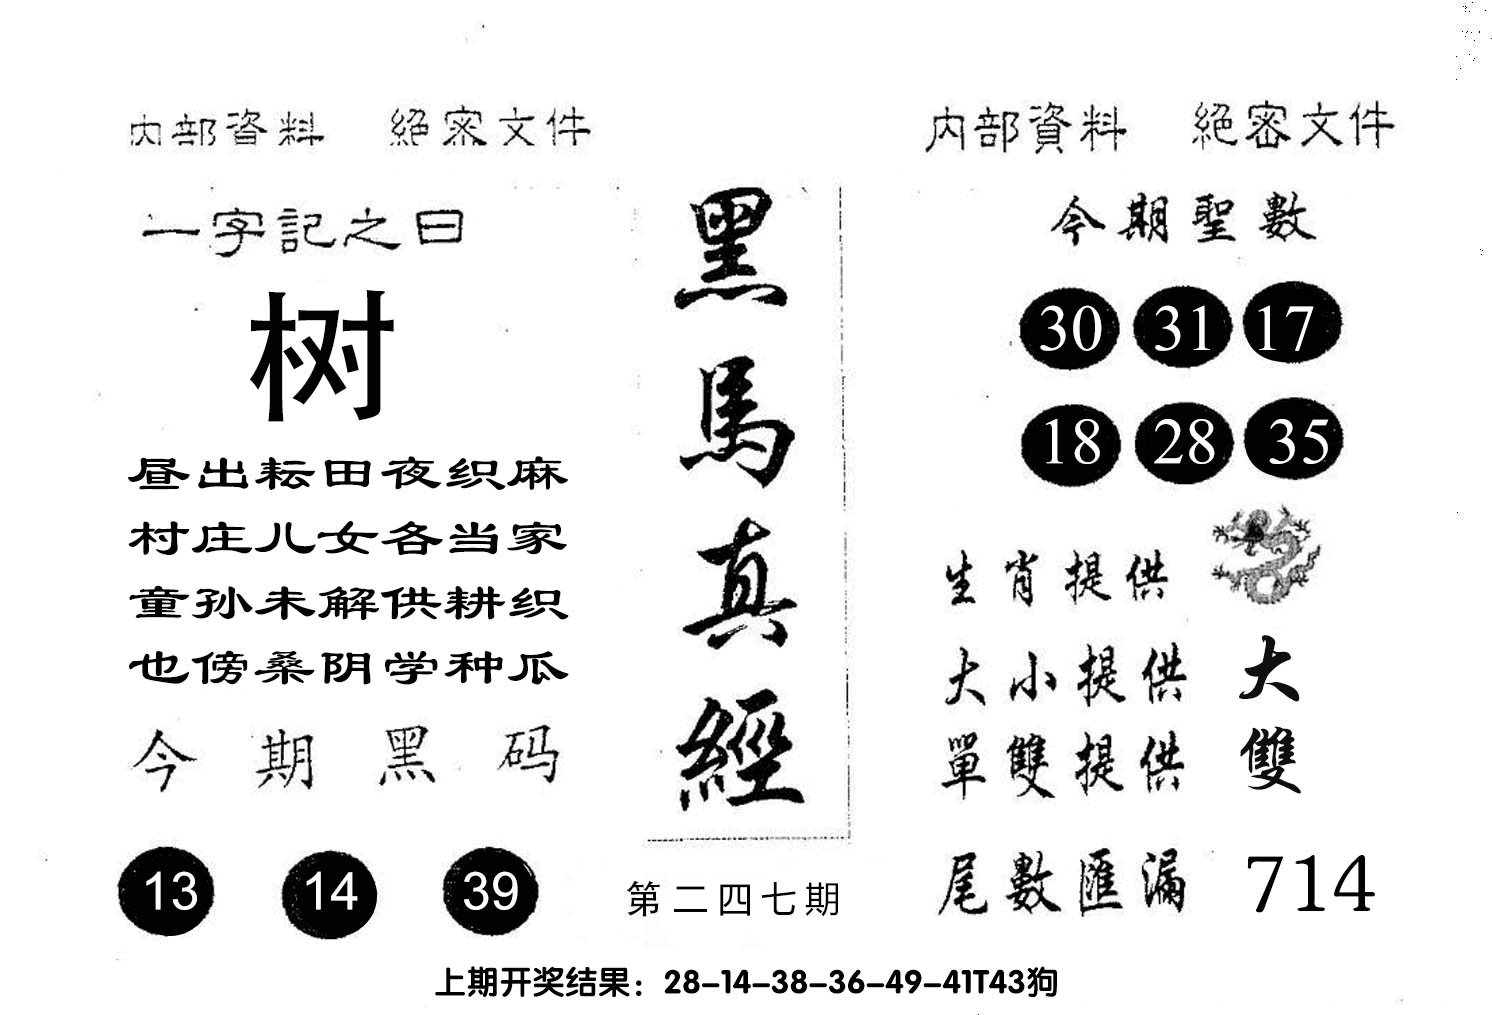 内部資料 絕密文件
一字記之曰
树
昼出耘田夜织麻
村庄儿女各当家
童孙未解供耕织
也傍桑阴学种瓜
今期黑码
13 14 39
黑馬真經
第二四七期
内部資料 絕密文件
今期聖數
30 31 17
18 28 35
生肖提供
大小提供 大
單雙提供 雙
尾數匯漏 714
上期开奖结果：28-14-38-36-49-41T43狗